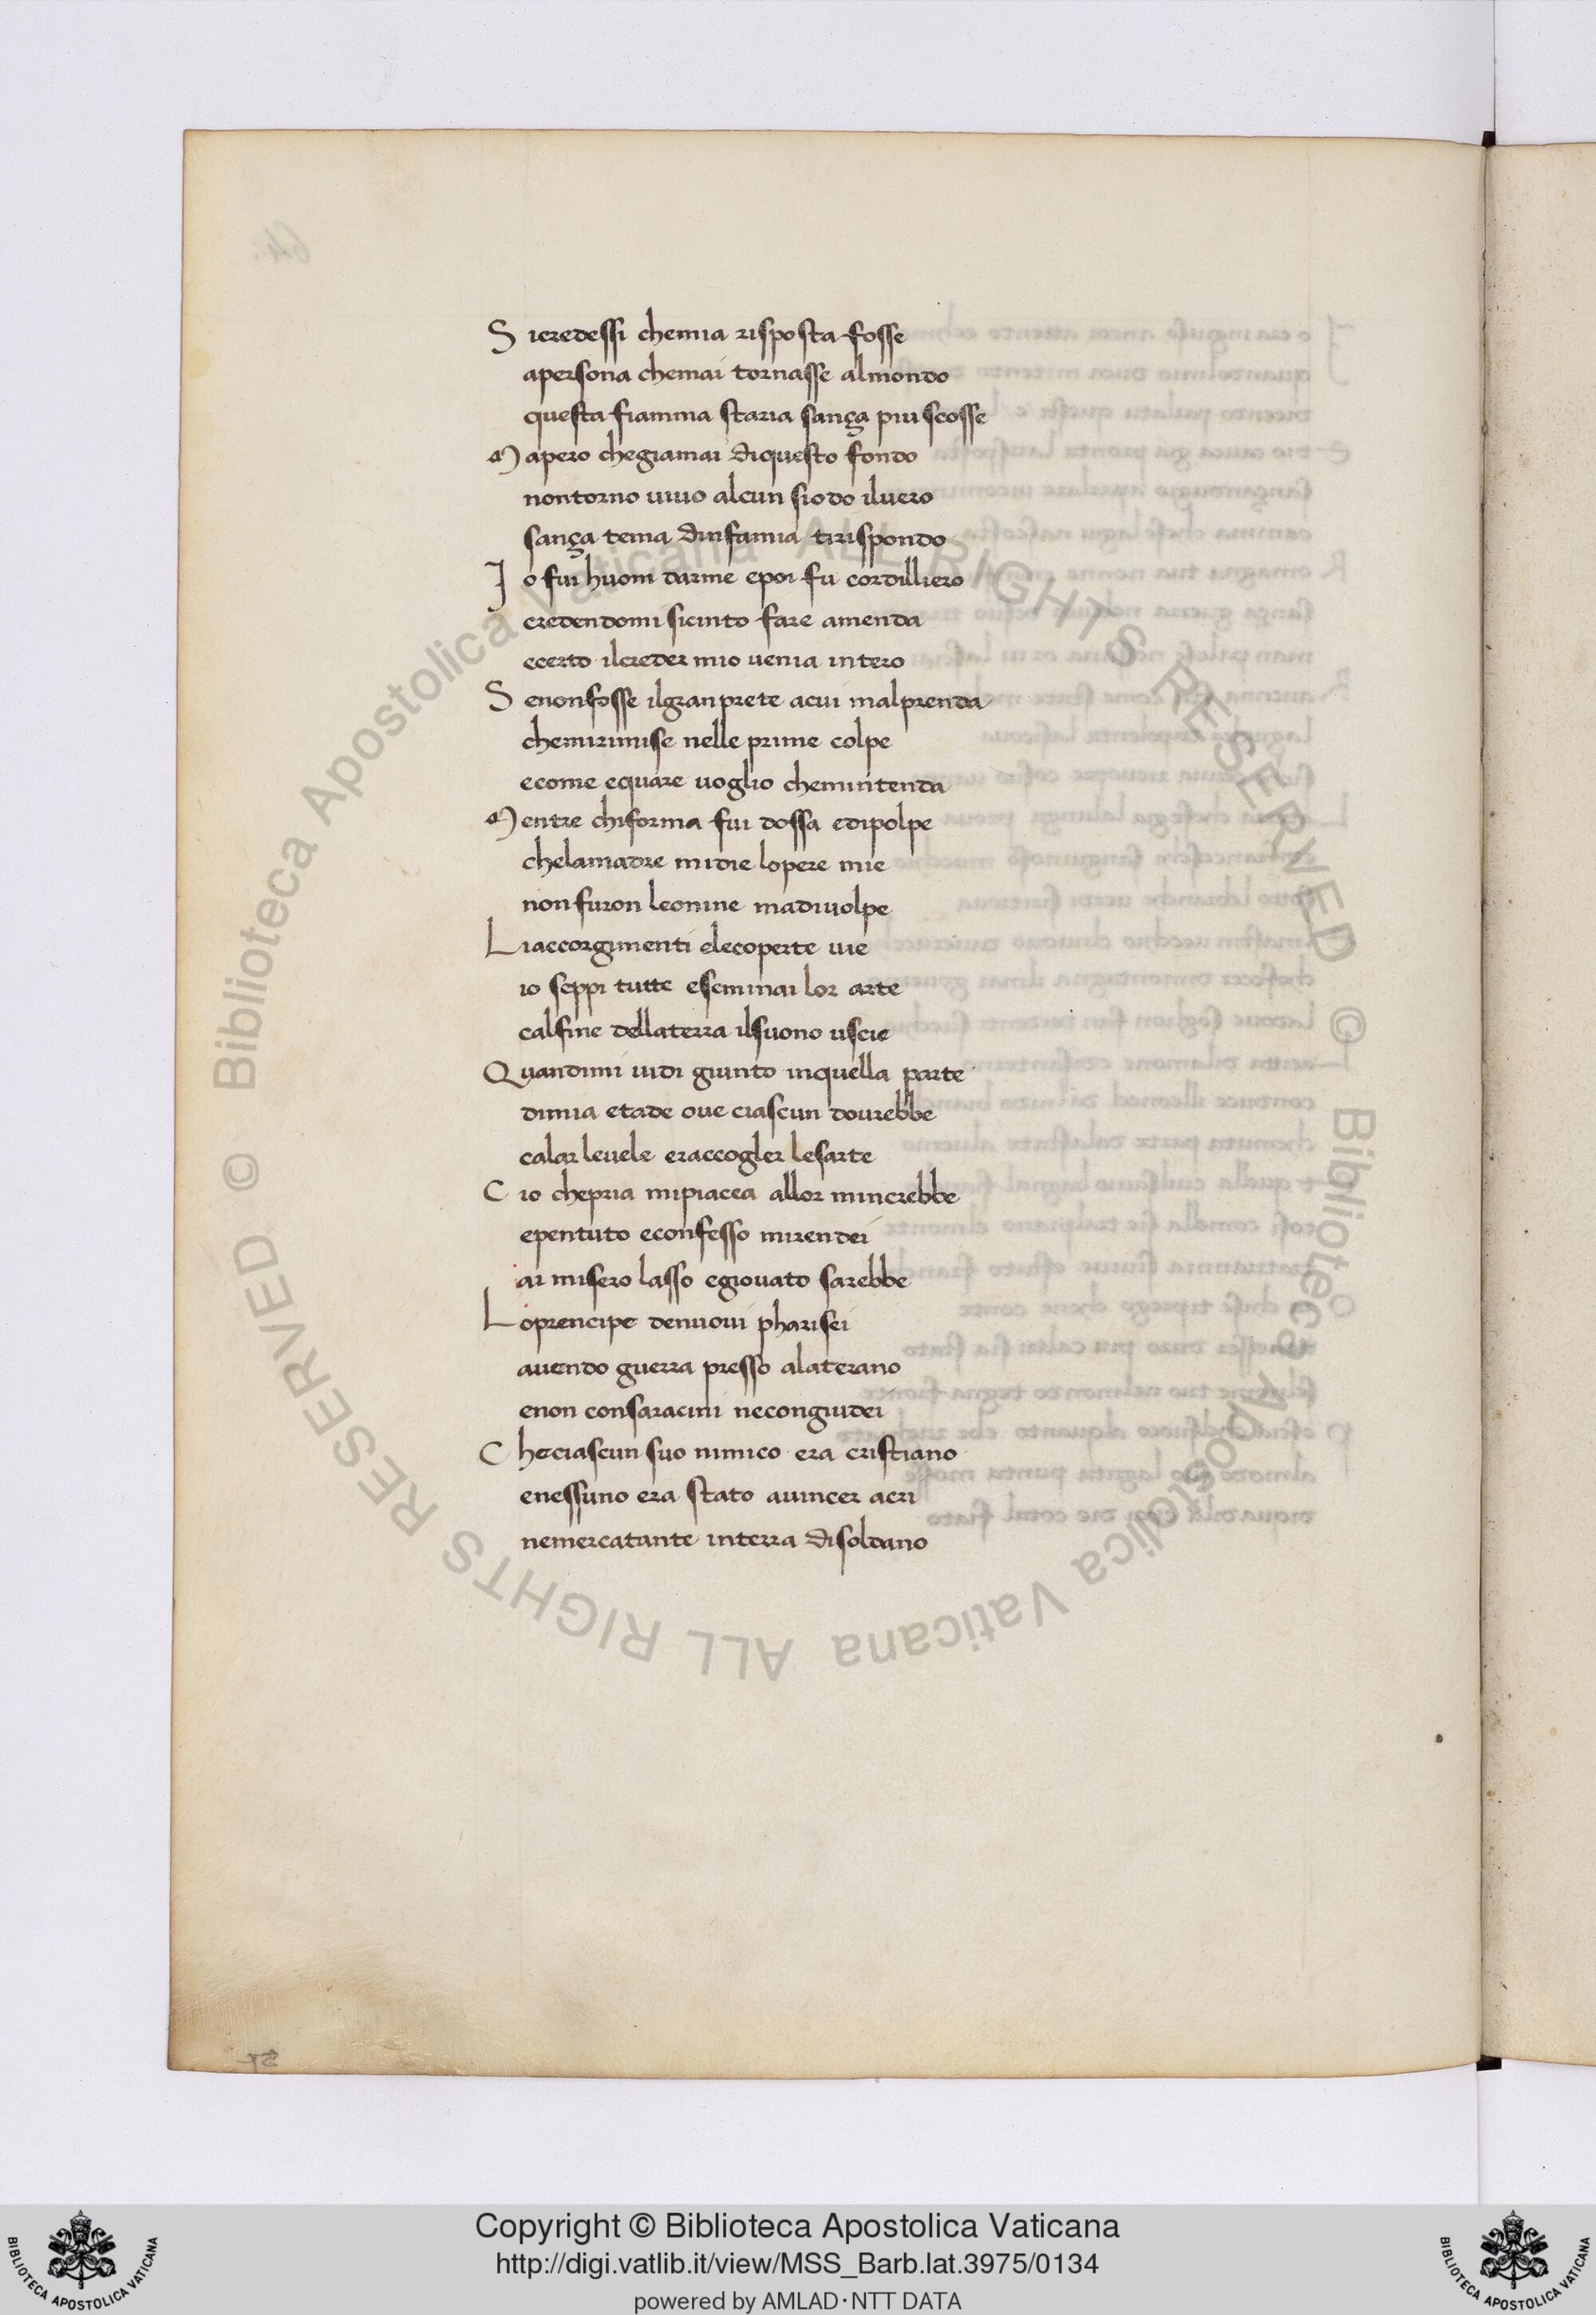 S icredessi chemia risposta fosse
apersona chemai tornasse almondo
questa fiamma staria sança piu scosse
M apero chegiamai diquesto fondo
nontorno uiuo alcun siodo iluero
sança tema dinfamia tirispondo
J o fui huom darme epoi fu cordilliero
credendomi sicinto fare amenda
ecerto ilcreder mio uenia intero
S enonfosse ilgranprete acui malprenda
chemirimise nelle prime colpe
ecome equare uoglio chemintenda
M entre chiforma fui dossa edipolpe
chelamadre midie lopere mie
nonfuron leonine madiuolpe
L iaccorgimenti elecoperte uie
io seppi tutte eseminai lor arte
calfine dellaterra ilsuono uscie
Q uandimi uidi giunto inquella parte
dimia etade oue ciascun dourebbe
calar leuele eraccogler lesarte
C io chepria mipiacea allor mincrebbe
epentuto econfesso mirendei
ai misero lasso egiouato sarebbe
L oprencipe denuoui pharisei
auendo guerra presso alaterano
enon consaracini necongiudei
C heciascun suo nimico era cristiano
enessuno era stato auincer acri
nemercatante interra disoldano
© Biblioteca Apostolica Vaticana ALL RIGHTS RESERVED
© Biblioteca Apostolica Vaticana ALL RIGHTS RESERVED
Copyright © Biblioteca Apostolica Vaticana
http://digi.vatlib.it/view/MSS_Barb.lat.3975/0134
powered by AMLAD·NTT DATA
BIBLIOTECA APOSTOLICA VATICANA
BIBLIOTECA APOSTOLICA VATICANA